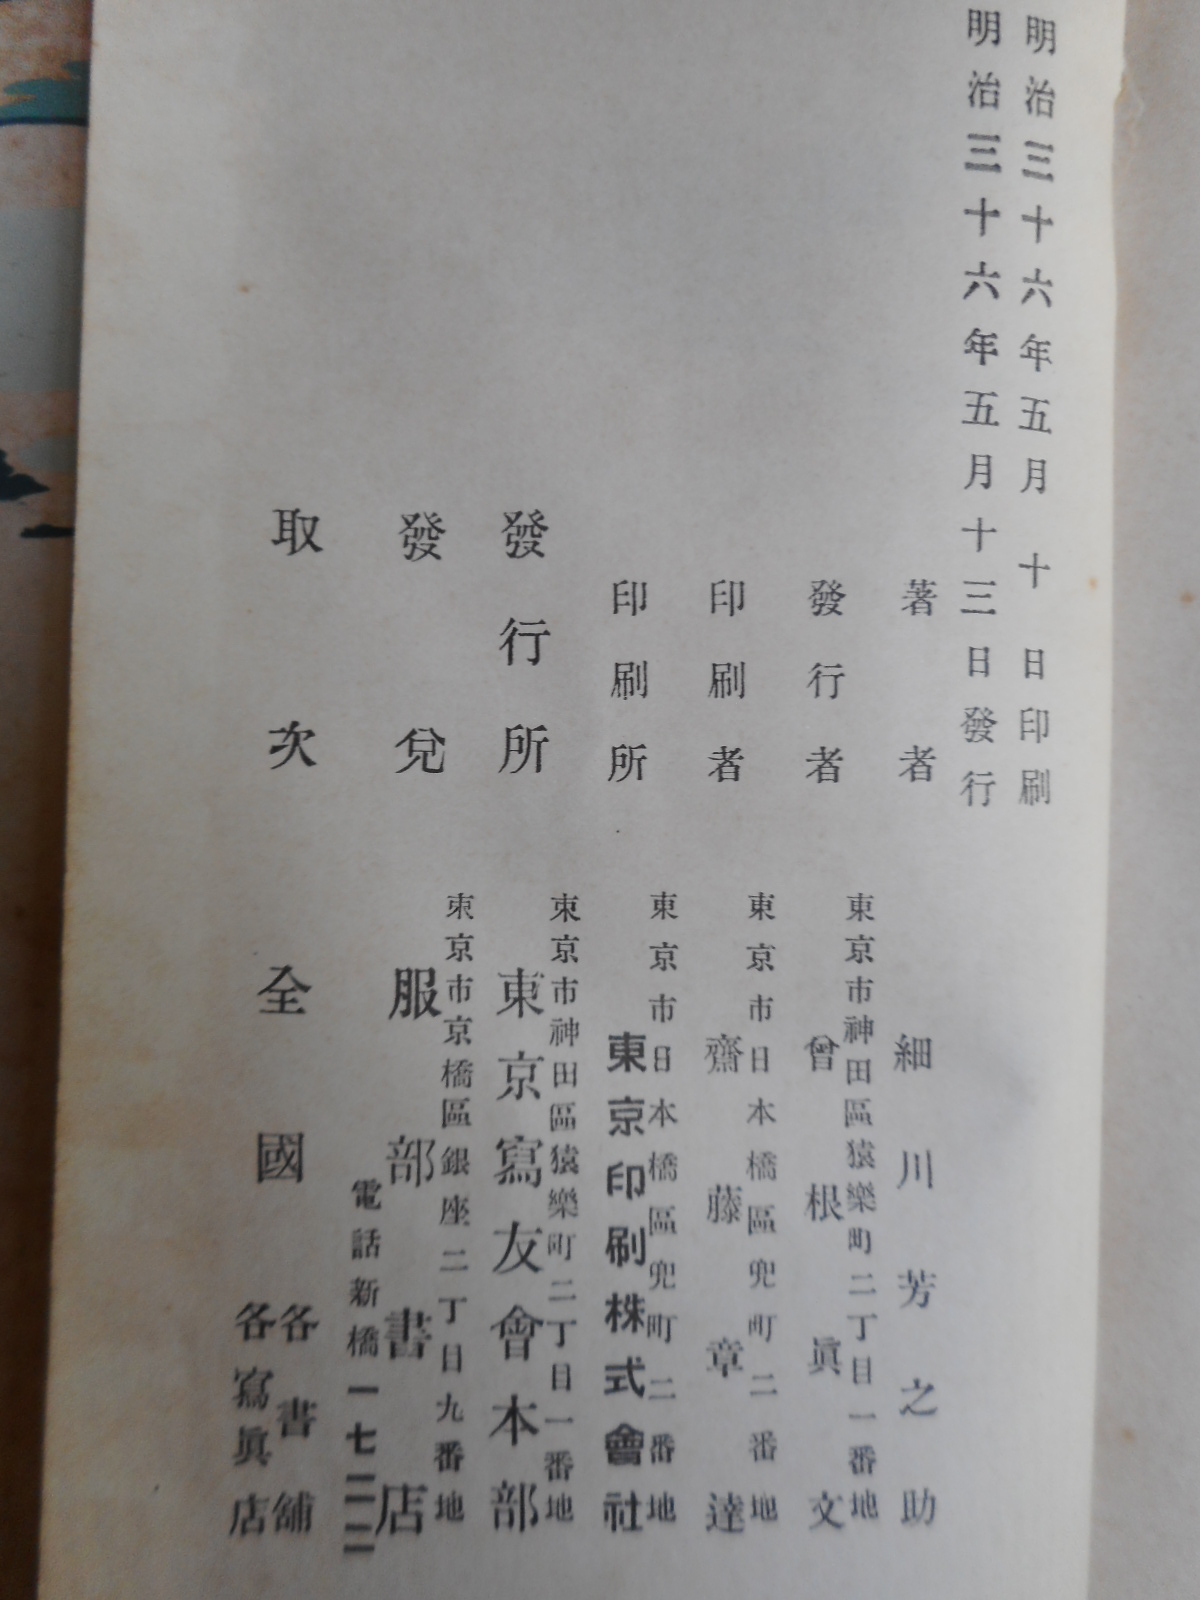 明治三十六年五月十日印刷
明治三十六年五月十三日發行
著者 細川芳之助
東京市神田區猿樂町二丁目一番地
發行者 曾根眞文
東京市日本橋區兜町二番地
印刷者 齋藤章達
東京市日本橋區兜町二番地
印刷所 東京印刷株式會社
東京市神田區猿樂町二丁目一番地
發行所 東京寫友會本部
東京市京橋區銀座二丁目九番地
發兌 服部書店
電話新橋一七二二
取次 全國
各書舖
各寫眞店